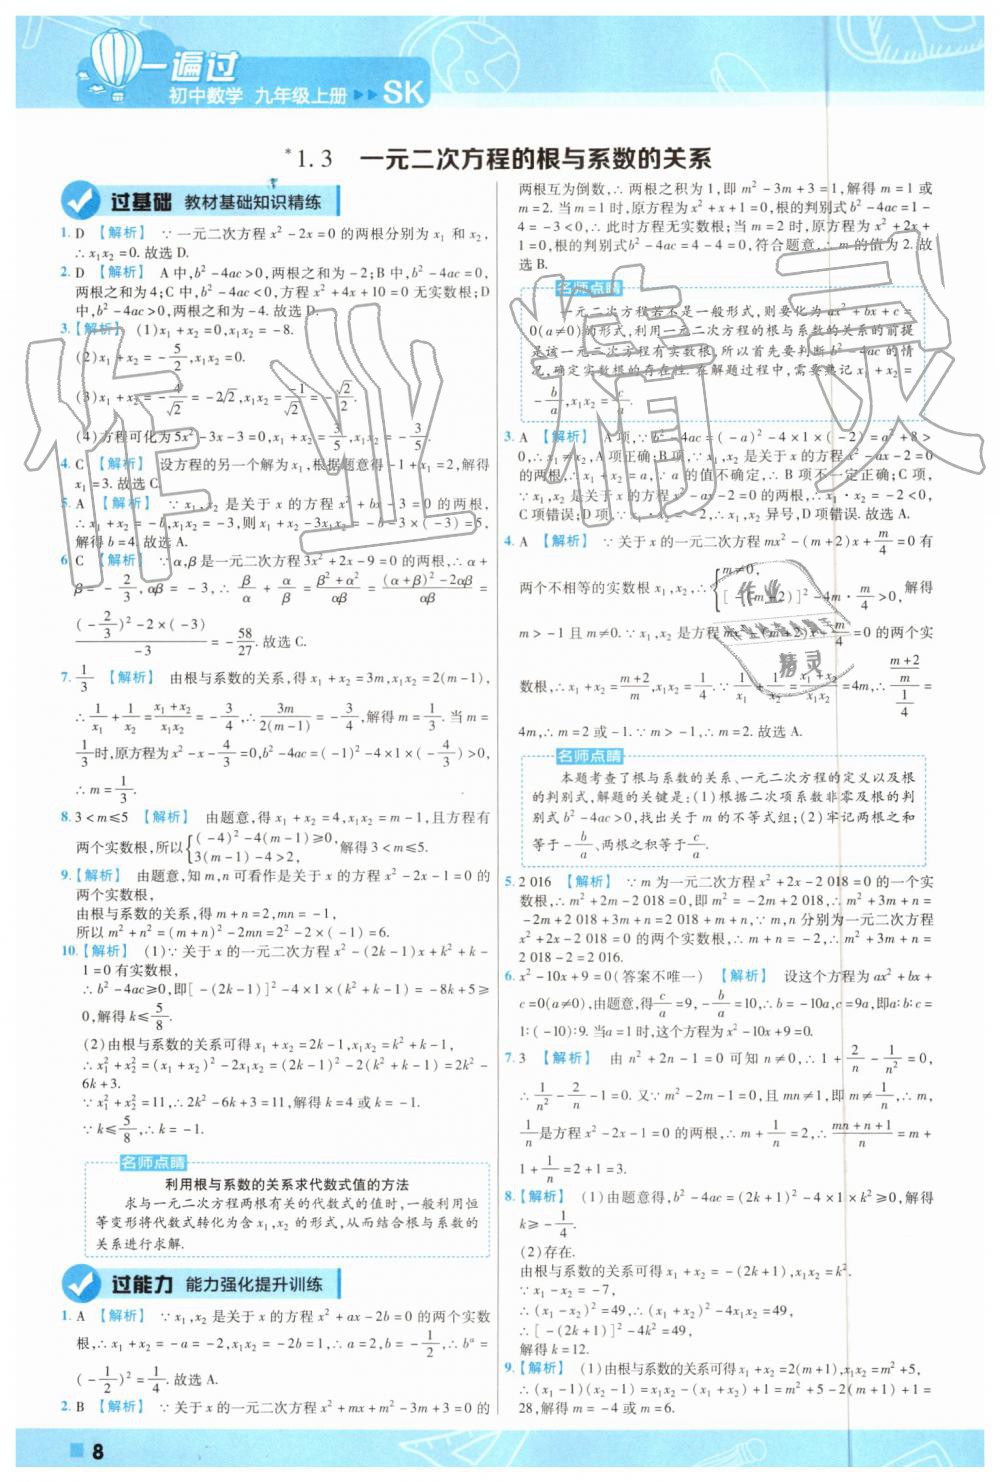 一遍过
初中数学 九年级上册 ▶▶ SK
*1.3 一元二次方程的根与系数的关系
过基础 教材基础知识精练
1. D 【解析】 ∵一元二次方程x²-2x=0的两根分别为x₁和x₂,
∴x₁x₂=0.故选D.
2. D 【解析】 A中,b²-4ac>0,两根之和为-2;B中,b²-4ac=0,
两根之和为4;C中,b²-4ac<0,方程x²+4x+10=0无实数根;D
中,b²-4ac>0,两根之和为-4.故选D.
3.【解析】 (1)x₁+x₂=0,x₁x₂=-8.
(2)x₁+x₂=-5/2,x₁x₂=0.
(3)x₁+x₂=-4/√2=-2√2,x₁x₂=-1/√2=-√2/2.
(4)方程可化为5x²-3x-3=0,x₁+x₂=3/5,x₁x₂=-3/5.
4. C 【解析】 设方程的另一个解为x₁,根据题意得-1+x₁=2,解得
x₁=3.故选C.
5. A 【解析】 ∵x₁,x₂是关于x的方程x²+bx-3=0的两根,
∴x₁+x₂=-b,x₁x₂=-3,则x₁+x₂-3x₁x₂=-b-3×(-3)=5,
解得b=4.故选A.
6 C 【解析】 ∵α,β是一元二次方程3x²+2x-9=0的两根,∴α+
β=-2/3,αβ=-3,∴β/α+α/β=(β²+α²)/αβ=((α+β)²-2αβ)/αβ=
((-2/3)²-2×(-3))/-3=-58/27.故选C.
7. 1/3 【解析】 由根与系数的关系,得x₁+x₂=3m,x₁x₂=2(m-1),
∴1/x₁+1/x₂=(x₁+x₂)/x₁x₂=-3/4,∴3m/2(m-1)=-3/4,解得m=1/3.当m=
1/3时,原方程为x²-x-4/3=0,b²-4ac=(-1)²-4×1×(-4/3)>0,
∴m=1/3.
8. 3<m≤5 【解析】 由题意,得x₁+x₂=4,x₁x₂=m-1,且方程有
两个实数根,所以{(-4)²-4(m-1)≥0, 3(m-1)-4>2, 解得3<m≤5.
9.【解析】 由题意,知m,n可看作是关于x的方程x²-2x-1=0的
两个实数根,
由根与系数的关系,得m+n=2,mn=-1,
所以m²+n²=(m+n)²-2mn=2²-2×(-1)=6.
10.【解析】 (1)∵关于x的一元二次方程x²-(2k-1)x+k²+k-
1=0有实数根,
∴b²-4ac≥0,即[-(2k-1)]²-4×1×(k²+k-1)=-8k+5≥
0,解得k≤5/8.
(2)由根与系数的关系可得x₁+x₂=2k-1,x₁x₂=k²+k-1,
∴x₁²+x₂²=(x₁+x₂)²-2x₁x₂=(2k-1)²-2(k²+k-1)=2k²-
6k+3.
∵x₁²+x₂²=11,∴2k²-6k+3=11,解得k=4或k=-1.
∵k≤5/8,∴k=-1.
名师点睛
利用根与系数的关系求代数式值的方法
求与一元二次方程两根有关的代数式的值时,一般利用恒
等变形将代数式转化为含x₁,x₂的形式,从而结合根与系数的
关系进行求解.
过能力 能力强化提升训练
1. A 【解析】 ∵x₁,x₂是关于x的方程x²+ax-2b=0的两个实数
根,∴x₁+x₂=-a=-2,x₁x₂=-2b=1,∴a=2,b=-1/2,∴bᵃ=
(-1/2)²=1/4.故选A.
2. B 【解析】 ∵关于x的一元二次方程x²+mx+m²-3m+3=0的
两根互为倒数,∴两根之积为1,即m²-3m+3=1,解得m=1或
m=2.当m=1时,原方程为x²+x+1=0,根的判别式b²-4ac=1-
4=-3<0,∴此时方程无实数根;当m=2时,原方程为x²+2x+
1=0,根的判别式b²-4ac=4-4=0,符合题意,∴m的值为2.故
选B.
名师点睛
一元二次方程若不是一般形式,则要化为ax²+bx+c=
0(a≠0)的形式,利用一元二次方程的根与系数的关系的前提
是该一元二次方程有实数根,所以首先要判断b²-4ac的情
况,确定实数根的存在性.在解题过程中,需要熟记x₁+x₂=
-b/a,x₁x₂=c/a.
3. A 【解析】 A项,∵b²-4ac=(-a)²-4×1×(-2)=a²+8>
0,∴x₁≠x₂,A项正确;B项,∵x₁,x₂是关于x的方程x²-ax-2=0
的两根,∴x₁+x₂=a,∵a的值不确定,∴B项不一定正确;C项,
∵x₁,x₂是关于x的方程x²-ax-2=0的两根,∴x₁·x₂=-2<0,
C项错误;D项,∵x₁·x₂=-2,∴x₁,x₂异号,D项错误.故选A.
4. A 【解析】 ∵关于x的一元二次方程mx²-(m+2)x+m/4=0有
两个不相等的实数根x₁,x₂,∴{m≠0, [-(m+2)]²-4m·m/4>0, 解得
m>-1且m≠0.∵x₁,x₂是方程mx²-(m+2)x+m/4=0的两个实
数根,∴x₁+x₂=(m+2)/m,x₁x₂=1/4.∵1/x₁+1/x₂=(x₁+x₂)/x₁x₂=4m,∴((m+2)/m)/(1/4)=
4m,∴m=2或-1.∵m>-1,∴m=2.故选A.
名师点睛
本题考查了根与系数的关系、一元二次方程的定义以及根
的判别式,解题的关键是:(1)根据二次项系数非零及根的判
别式b²-4ac>0,找出关于m的不等式组;(2)牢记两根之和
等于-b/a、两根之积等于c/a.
5. 2 016 【解析】 ∵m为一元二次方程x²+2x-2 018=0的一个实
数根,∴m²+2m-2 018=0,即m²=-2m+2 018,∴m²+3m+n=
-2m+2 018+3m+n=2 018+m+n,∵m,n分别为一元二次方程
x²+2x-2 018=0的两个实数根,∴m+n=-2,∴m²+3m+n=
2 018-2=2 016.
6. x²-10x+9=0(答案不唯一) 【解析】 设这个方程为ax²+bx+
c=0(a≠0),由题意,得c/a=9,-b/a=10,∴b=-10a,c=9a,即a:b:c=
1:(-10):9.当a=1时,这个方程为x²-10x+9=0.
7. 3 【解析】 由n²+2n-1=0可知n≠0,∴1+2/n-1/n²=0,
∴1/n²-2/n-1=0.又∵m²-2m-1=0,且mn≠1,即m≠1/n,∴m,
1/n是方程x²-2x-1=0的两根,∴m+1/n=2,∴(mn+n+1)/n=m+
1+1/n=2+1=3.
8.【解析】 (1)由题意得,b²-4ac=(2k+1)²-4×1×k²≥0,解得
k≥-1/4.
(2)存在.
由根与系数的关系可得x₁+x₂=-(2k+1),x₁x₂=k².
∵x₁-x₂=-7,
∴(x₁-x₂)²=49,∴(x₁+x₂)²-4x₁x₂=49,
∴[-(2k+1)]²-4k²=49,
解得k=12.
9.【解析】 (1)由根与系数的关系可得x₁+x₂=2(m+1),x₁x₂=m²+5,
∴(x₁-1)(x₂-1)=x₁x₂-(x₁+x₂)+1=m²+5-2(m+1)+1=
28,解得m=-4或m=6.
8
作业精灵
作业
精灵